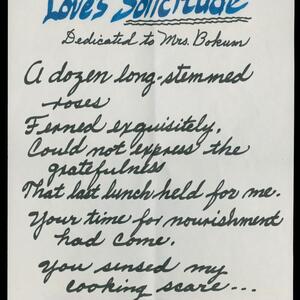 Love's Solicitude
Dedicated to Mrs. Bokum
A dozen long-stemmed
roses
Ferned exquisitely,
Could not express the
gratefulness
That last lunch held for me.
Your time for nourishment
had come.
You sensed my
cooking scare...